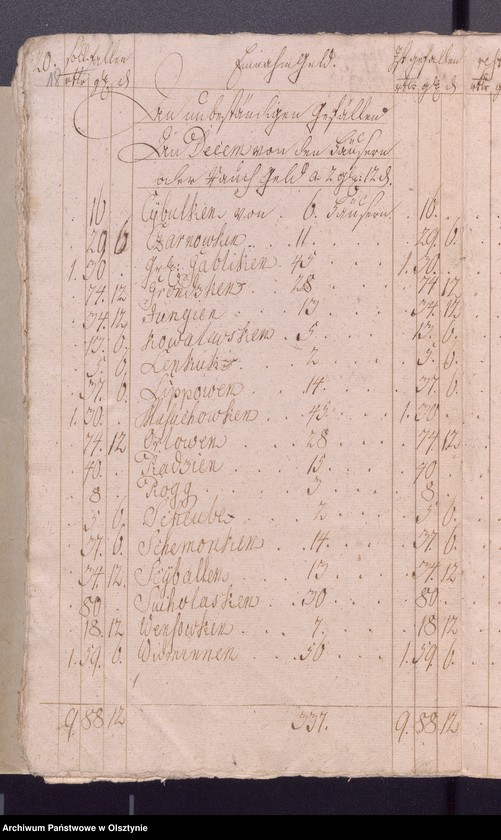 20. Soll gefallen Einnahm Geld. Ist gefallen
rtlr gr d rtlr gr d
An unbeständigen Gefällen
An Decem von den Häusern
oder Rauch Geld a 2 gr: 12 d.
16 Cybulken von 6. Häusern 16.
29 6 Czarnowken 11. 29. 6.
1. 30 Gr: Gablicken 45 1. 30.
74. 12 Grondzken 28 74 12
34. 12 Jungien 13 34. 12
13. 6. Kowalewsken 5 13. 6
5. 6. Lenkuk 2 5. 6.
37. 6 Lippowen 14. 37. 6.
1. 30. Masuchowken 45 1. 30.
74. 12 Orlowen 28 74 12
40. Radzien 15. 40
8 Rogg 3 8.
5 6. Scheube 2 5 6.
37. 6 Schemonken 14. 37. 6.
34 12. Scyballen 13 34. 12
80. Sucholasken 30 80
18. 12 Wensowken 7. 18 12
1. 59. 6. Widminnen 50 1. 59. 6.
9. 88 12 337. 9. 88. 12
Archiwum Państwowe w Olsztynie